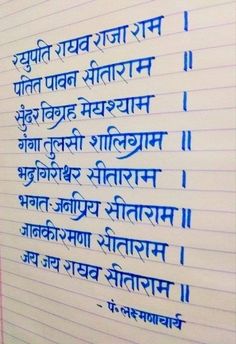 रघुपति राघव राजा राम ।
पतित पावन सीताराम ॥
सुंदर विग्रह मेघश्याम ।
गंगा तुलसी शालिग्राम ॥
भद्रगिरीश्वर सीताराम ।
भगत-जनप्रिय सीताराम ॥
जानकीरमणा सीताराम ।
जय जय राघव सीताराम ॥
- पं. लक्ष्मणाचार्य